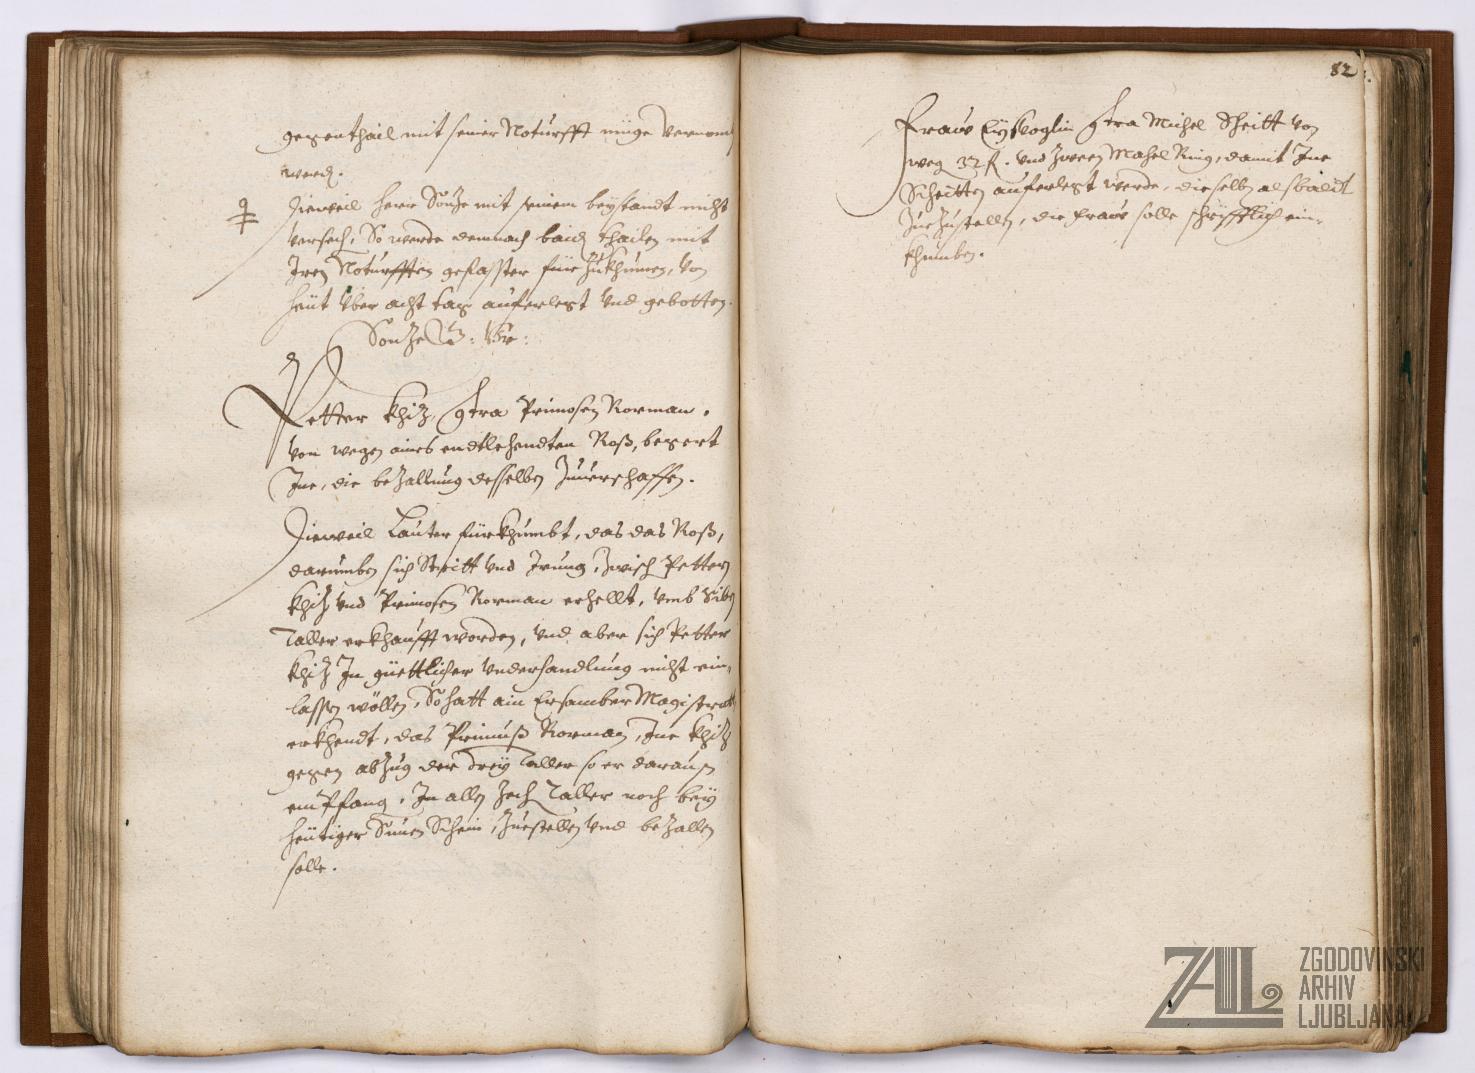 gegenthail mit seiner Noturfft müge vernomen
werd.
Dieweil herr Sonze mit seinem beystandt nicht
versech, So werde demnach baid thailen mit
Iren Notturfften gefasster für zukhumen, von
heüt vber acht tag auferlegt vnd gebotten.
Sonze
Petter Khiz, Contra Primosen Rorman.
von wegen aines endtlehendten Roß, begert
Ine, die bezallung desselben zuuerschaffen.
Dieweil Lauter fürkhumbt, das das Roß,
darumben sich Stritt vnd Irrung, zwisch Pettern
Khiz vnd Primosen Rorman erhellt, vmb Siben
Taller erkhaufft worden, vnd aber sich Petter
Khiz In güettlicher vnderhandlung nicht ein„
lassen wöllen, So hatt ain Ersamber Magistrat
erkhendt, das Primuß Rorman, Ine Khiz
gegen abzug der drey Taller so er daraus
emPfang, In allen Taller noch bey
heütiger Sunen Schein, zuestellen vnd bezallen
solle.
82
Fraw Contra Michel Scheitt von
weg 32 f. vnd zween Mahel Ring, damit Ime
Scheitten auferlegt werde, dieselben alsbaldt
Zuezustellen, die Fraw solle schrifftlich ein„
khumben.
ZGODOVINSKI
ARHIV
LJUBLJANA